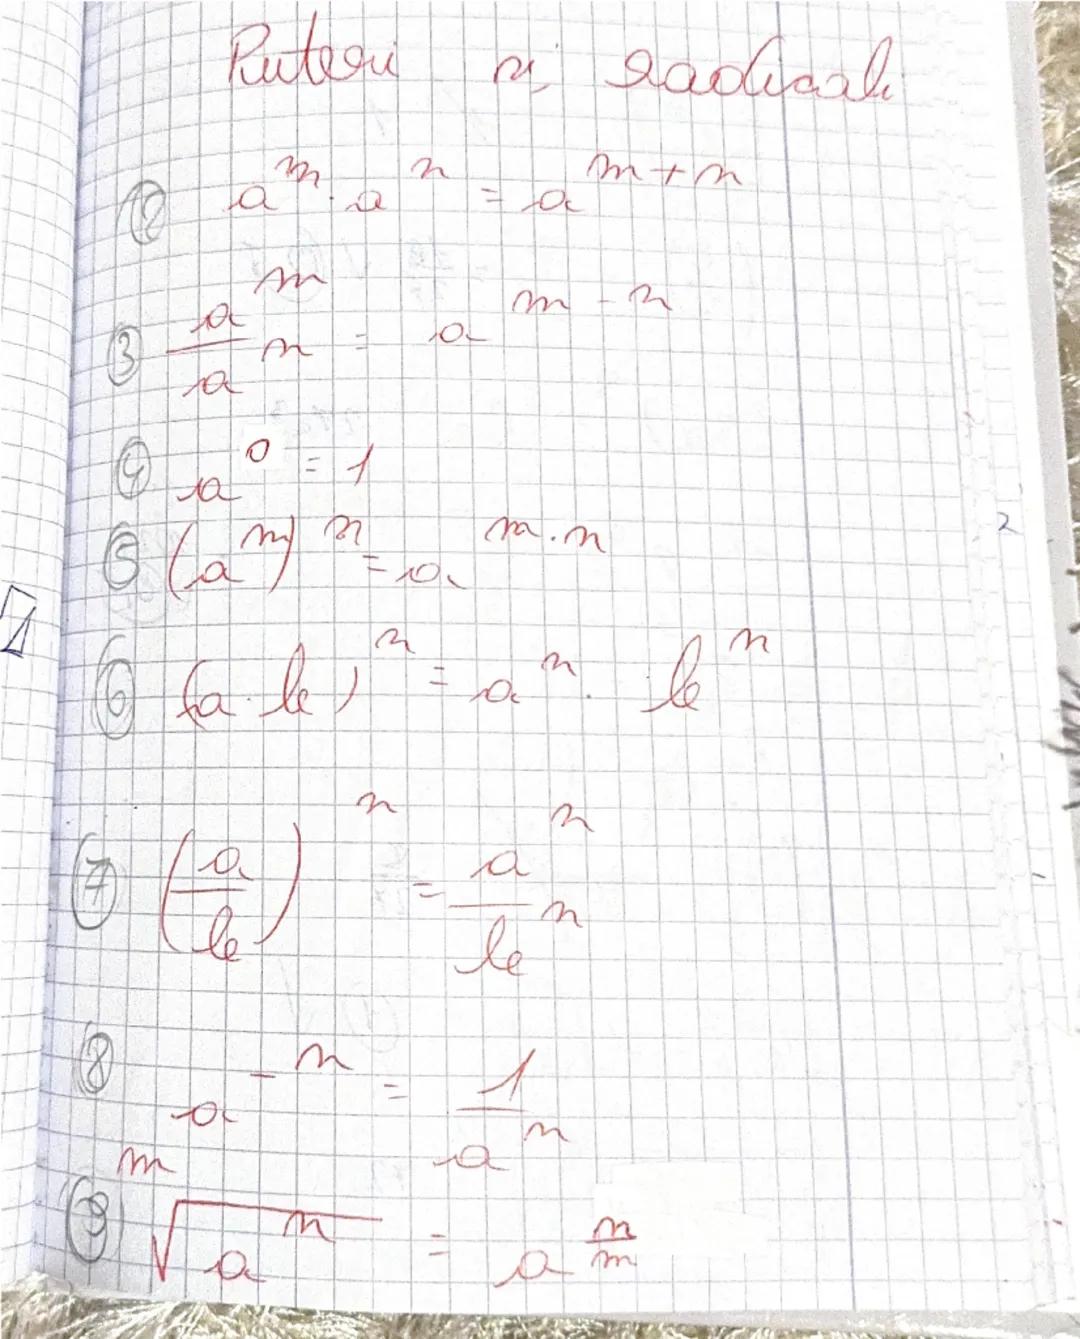 Puteri și radicali
② a^m · a^n = a^{m+n}
③ a^m / a^n = a^{m-n}
④ a^0 = 1
⑤ (a^m)^n = a^{m·n}
⑥ (a·b)^n = a^n · b^n
⑦ (a/b)^n = a^n / b^n
⑧ a^{-n} = 1 / a^n
⑨ ᵐ√(a^n) = a^{n/m}
2